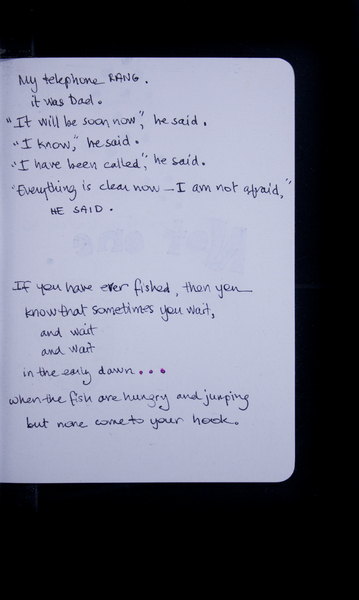 My telephone RANG.
it was Dad.
"It will be soon now", he said.
"I know," he said.
"I have been called", he said.
"Everything is clear now – I am not afraid,"
HE SAID.
If you have ever fished, then you
know that sometimes you wait,
and wait
and wait
in the early dawn...
when the fish are hungry and jumping
but none come to your hook.